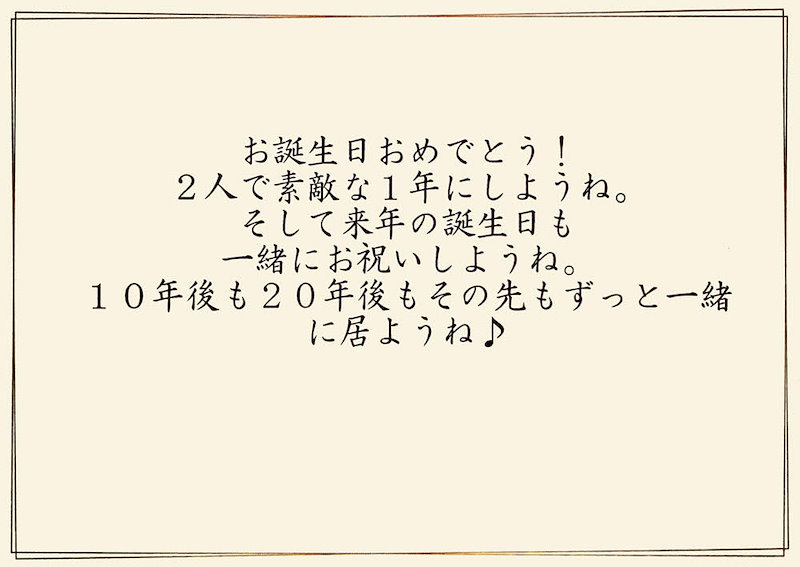 お誕生日おめでとう！
２人で素敵な１年にしようね。
そして来年の誕生日も
一緒にお祝いしようね。
１０年後も２０年後もその先もずっと一緒
に居ようね♪